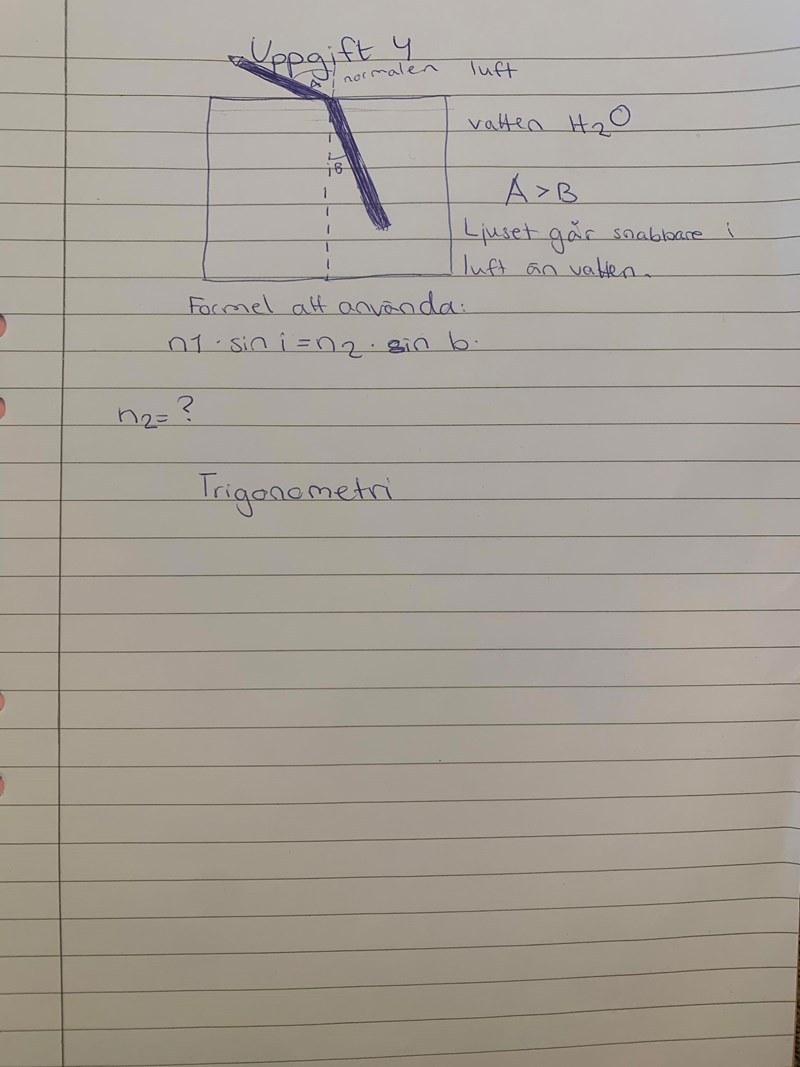 Uppgift 4
A normalen luft
vatten H2O
B
A > B
Ljuset går snabbare i
luft än vatten.
Formel att använda:
n1 · sin i = n2 · sin b.
n2 = ?
Trigonometri